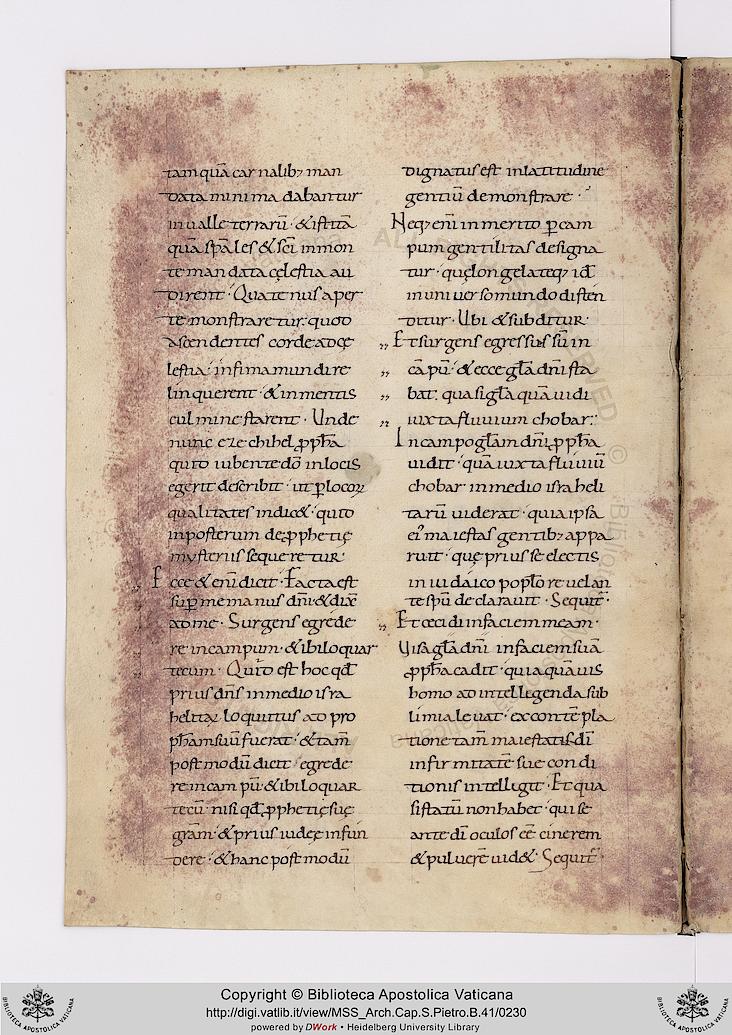 tamquā carnalibꝫ man
data minima dabantur
in ualle terrarū · & istitā
quā spāles & sc̄i in mon
te mandata cęlestia au
dirent · Quatenus aper
te monstraretur · quod
ascendentes corde ad cę
lestia · infima mundi re
linquerent · & in mentis
culmine starent · Unde
nunc ezechihel ꝓph̄a
quod iubente dō in locis
egerit describit · ut ꝑ locoꝝ
qualitates indic& · quid
in posterum de ꝓphetię
mysteriis sequeretur ·
Ecce & enī dicit · Facta est
suꝑ me manus dn̄i · & dix̄
ad me · Surgens egrede
re in campum · & ibi loquar
tecum · Quid est hoc qđ
prius dn̄s in medio isra
helitaꝝ locutus ad pro
ph̄am suū fuerat · & tam̄
postmodū dicit · egrede
re in campū · & ibi loquar
tecū · nisi qđ ꝓphetię suę
gram̄ · & prius iudeę infun
dere · & hanc postmodū
dignatus est in latitudine
gentiū demonstrare ·
Neqꝫ enī inmerito ꝑ cam
pum gentilitas designa
tur · quę longe lateqꝫ id̄
in uniuerso mundo disten
ditur · Ubi & subditur ·
„ Et surgens egressus sū in
„ cāpū · & ecce gl̄a dn̄i sta
„ bat · quasi gl̄a quā uidi
„ iuxta fluuium chobar ·
In campo gl̄am dn̄i ꝓph̄a
uidit · quā iuxta fluuiū
chobar in medio israheli
tarū uiderat · quia ipsa
ei' maiestas gentibꝫ appa
ruit · quę prius se electis
in iudaico poplo reuelan
te spū declarauit · Sequit̄ ·
„ Et cecidi in faciem meam ·
Uisa gl̄a dn̄i in faciem suā
ꝓph̄a cadit · quia quāuis
homo ad intellegenda sub
limia leuat · ex contēpla
tione tam̄ maiestatis dī
infirmitatē sue condi
tionis intelligit · Et qua
si statū non habet · qui se
ante dī oculos eē cinerem
& puluerē uid& · Sequit̄ ·
Copyright © Biblioteca Apostolica Vaticana
http://digi.vatlib.it/view/MSS_Arch.Cap.S.Pietro.B.41/0230
powered by DWork • Heidelberg University Library